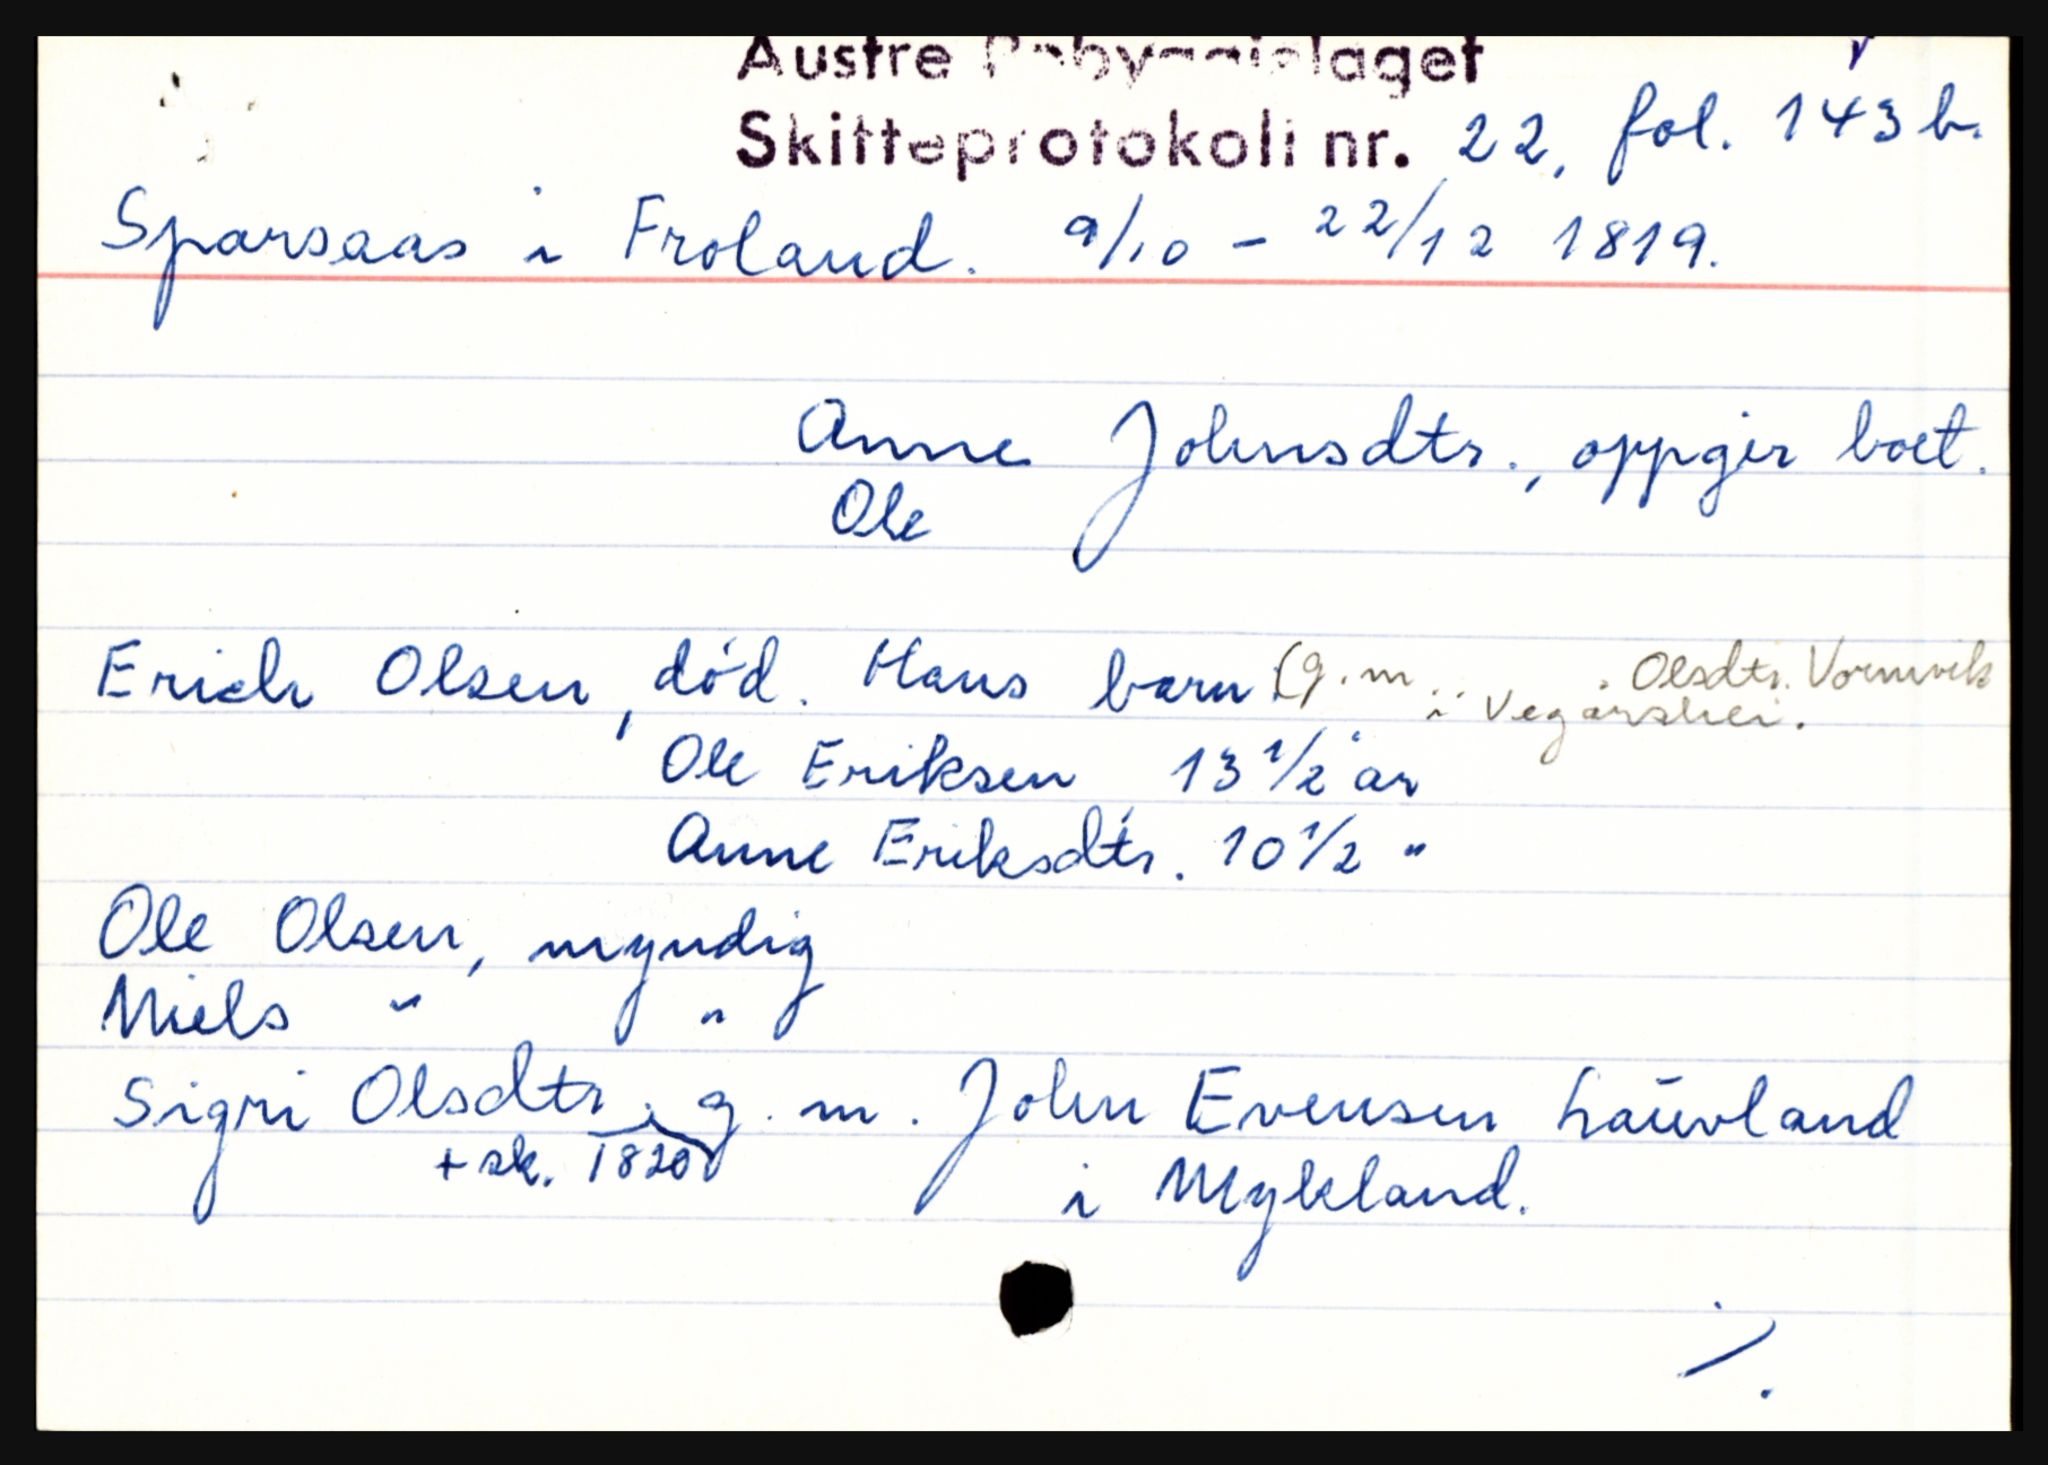 Austre Robyggjelaget
Skifteprotokoll nr. 22, fol. 143 b.
Sparsaas i Froland. 9/10 - 22/12 1819.
Anne Johnsdtr., oppgir boet.
Ole
Erich Olsen, død. Hans barn: (g.m. . Olsdtr. Vormvik
i Vegårshei.
Ole Eriksen 13 1/2 år
Anne Eriksdtr. 10 1/2 "
Ole Olsen, myndig
Niels " "
Sigri Olsdtr. g. m. John Evensen Lauvland
+ sk. 1820
i Mykland.